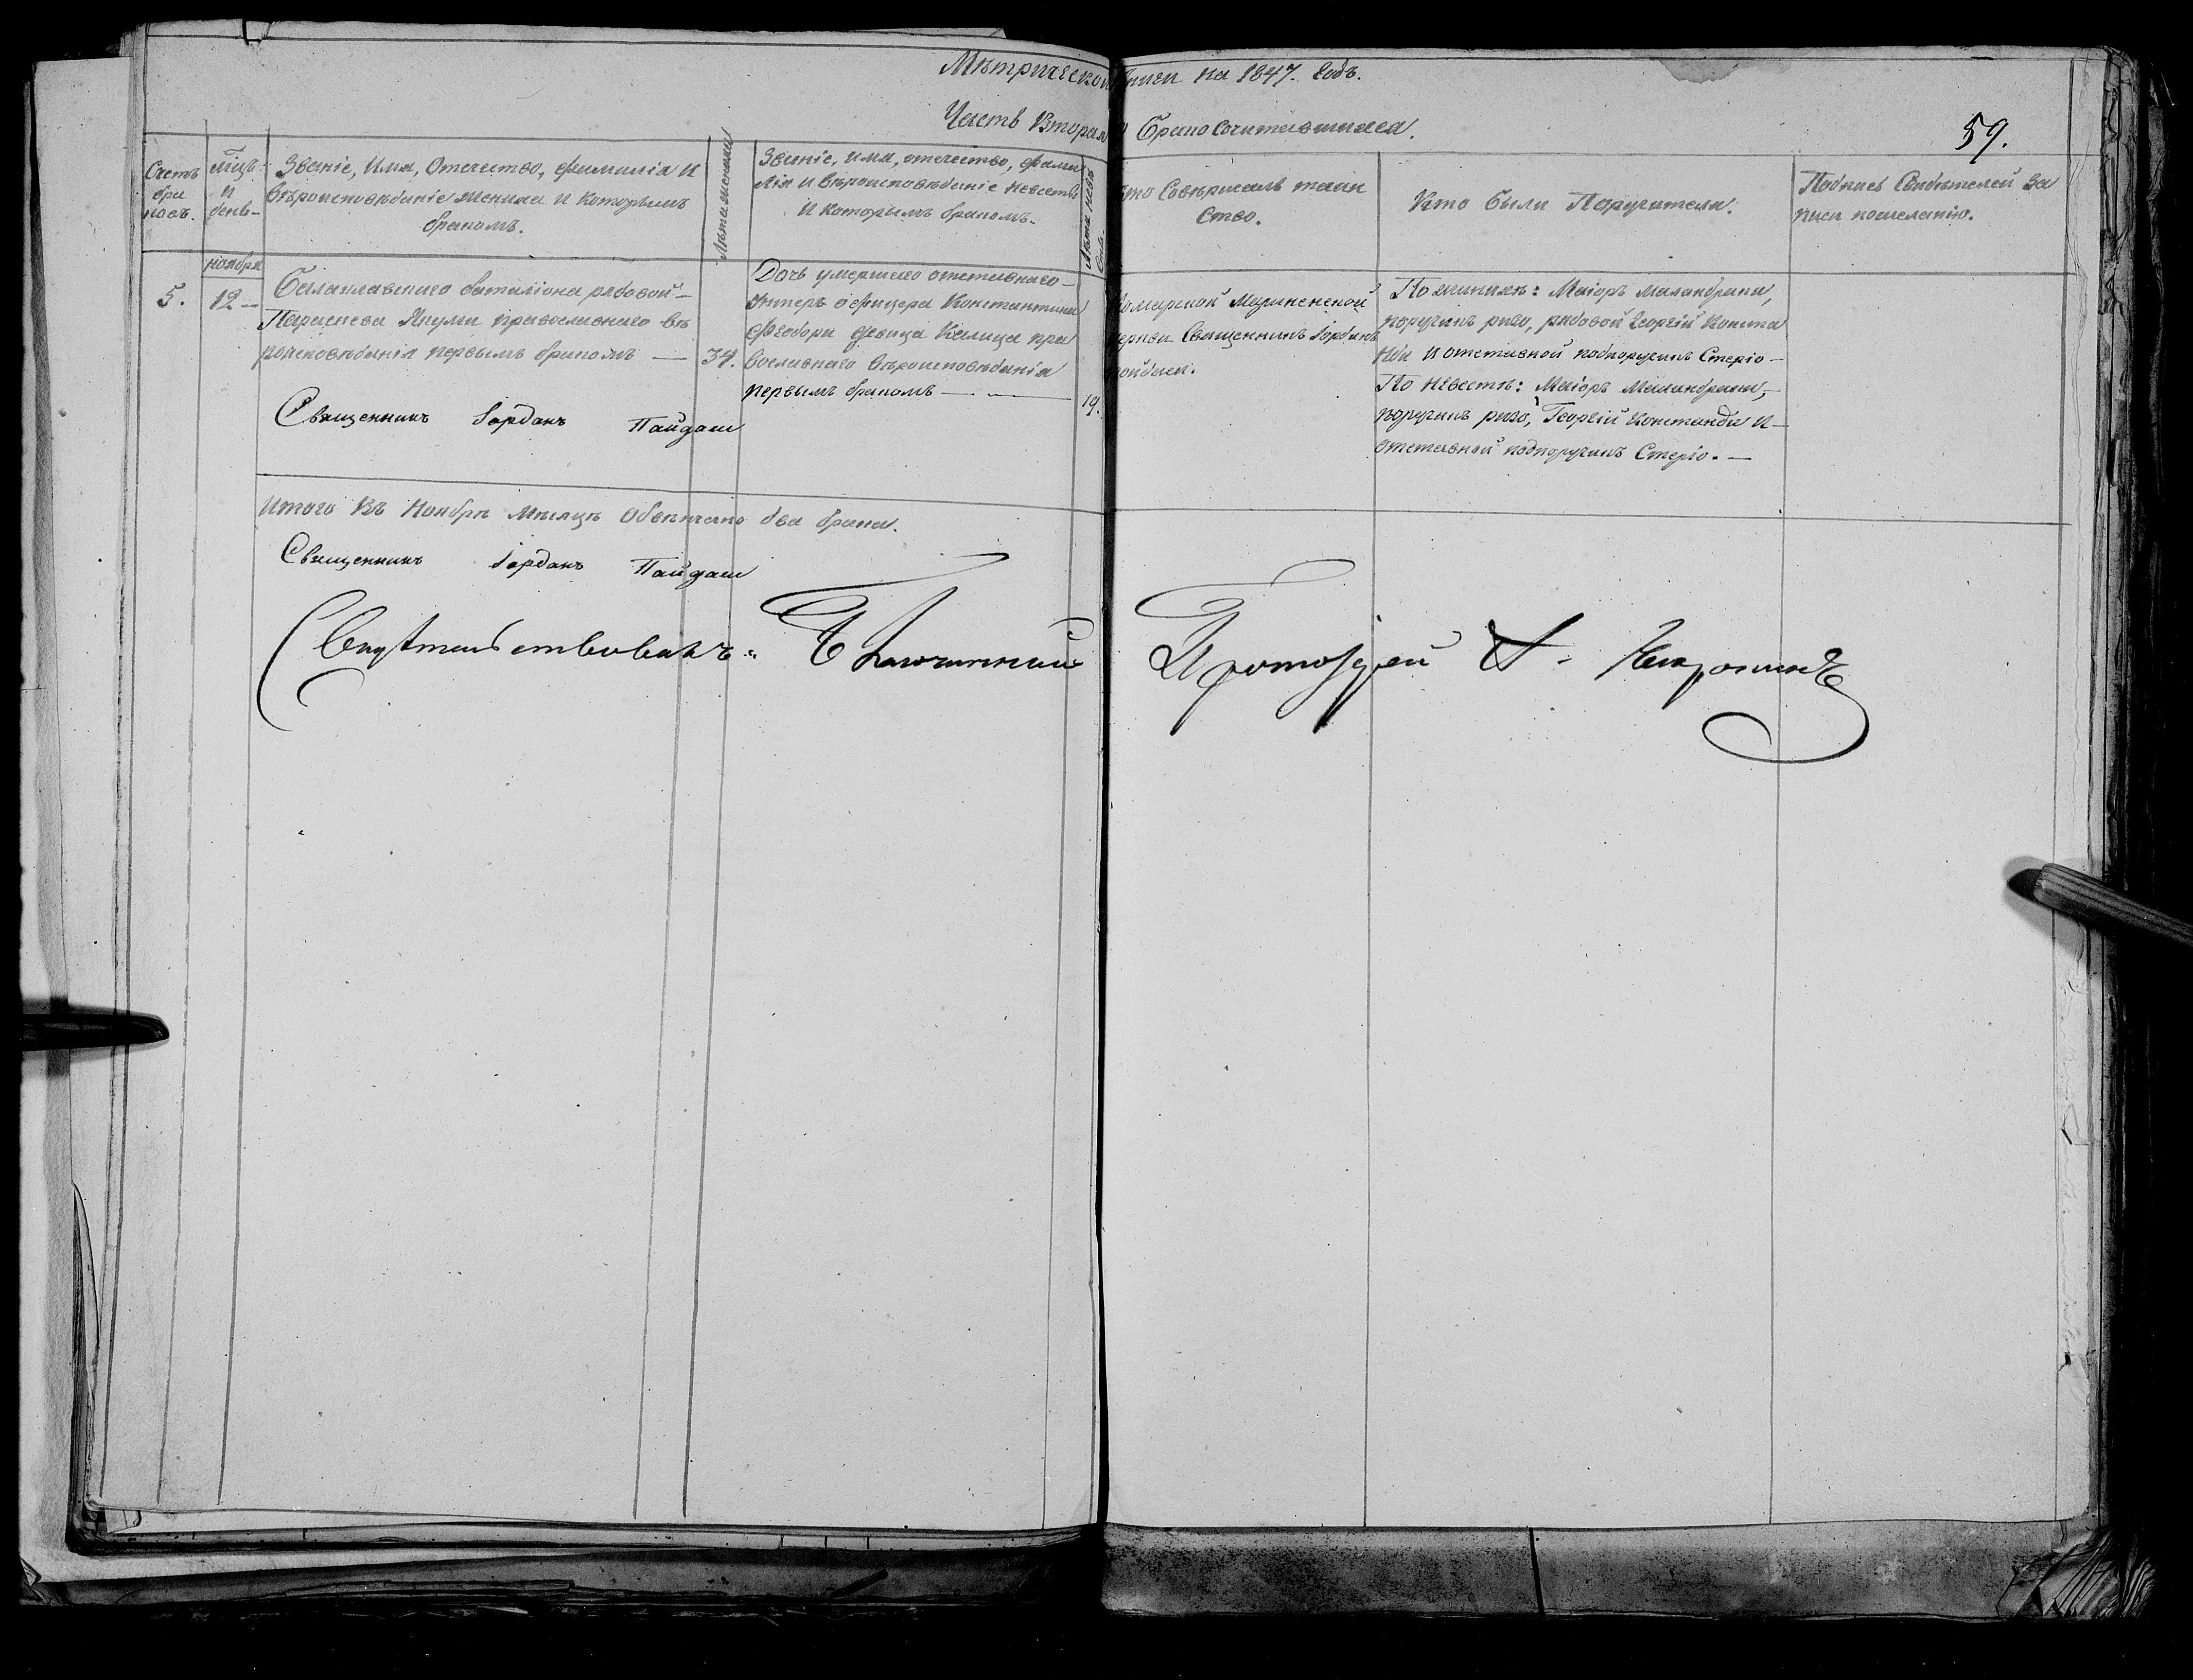 Мѣтрической книги на 1847. Годъ.
Часть Вторая О бракосочитавшихся.
59.
Счетъ бра ковъ.
Мцъ и день
Званіе, Имя, Отечество, фамилія И
вѣроисповѣданіе жениха И которымъ
бракомъ.
Лѣта жениха
Званіе, имя, отечество, фами
лія И вѣроисповѣданіе невѣсты
И которымъ бракомъ.
Лѣта невѣ
Кто Совѣршалъ таин
Ство.
Кто были Паручители.
Подпись Свидѣтелей За
писи пожеланію.
ноября
5.
12
Балаклавскаго баталіона рядовой
Параскева Янули православнаго вѣ
роисповѣданія первымъ бракомъ
34.
Дочь умершаго отставнаго
Унтеръ офицера Константина
Феодори девица Калица пра
вославнаго вѣроисповѣданія
первымъ бракомъ
19.
Комарской Мариненской
церкви Священникъ Іорданъ
Пайдаси.
По жиниху: Маіоръ Маландраки,
поручикъ ризо, рядовой Георгій Конста
нди И отставной подпоручикъ Стеріо
По Невестѣ: Маіоръ Маландраки,
поручикъ ризо, Георгій Константи И
отставной подпоручикъ Стеріо.
Священникъ Іорданъ Пайдаси
Итого Въ Ноябрѣ Мѣсяцѣ Обвѣнчано два брака.
Священникъ Іорданъ Пайдаси
Свидѣтельствовалъ Благочинный Протоіерей